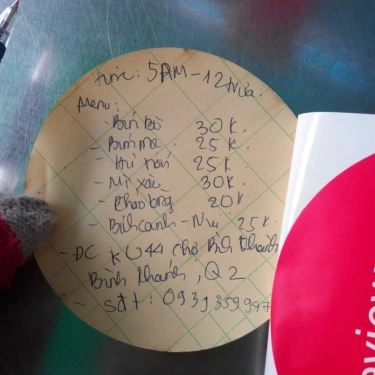 Time: 5AM - 12 trưa.
Menu:
- Bún bò 30K
- Bún mọc 25K.
- Hủ tiếu 25K
- Mì xào 30K.
- Cháo lòng 20K
- Bánh canh - Nui 25K.
- ĐC KU44 chợ Bình Khánh
Bình Khánh, Q2
- sđt: 0939359997
view